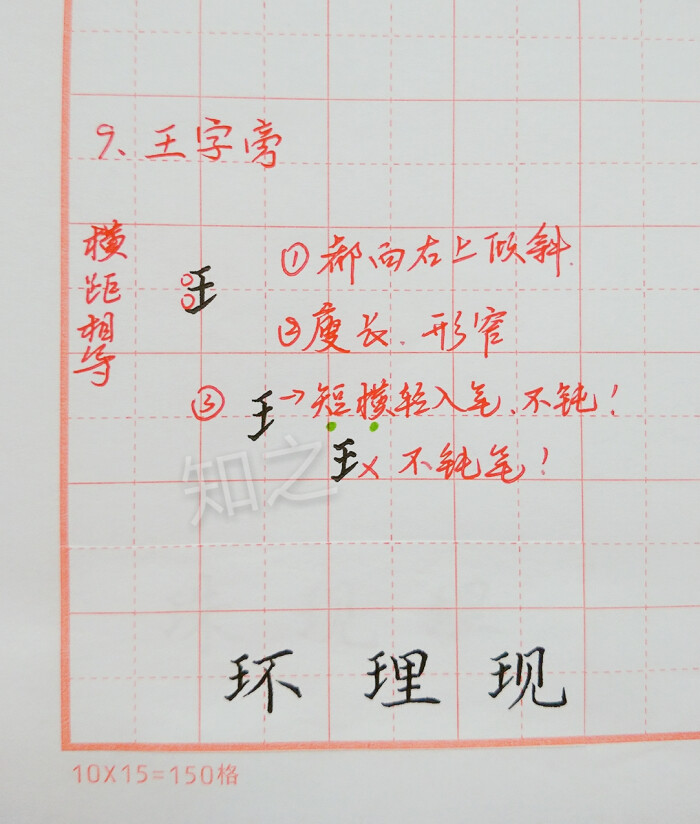 9、王字旁
横距相等
王
①都向右上倾斜.
②瘦长.形窄
③王→短横轻入笔、不钝!
王×不钝笔!
知之
环 理 现
10X15=150格